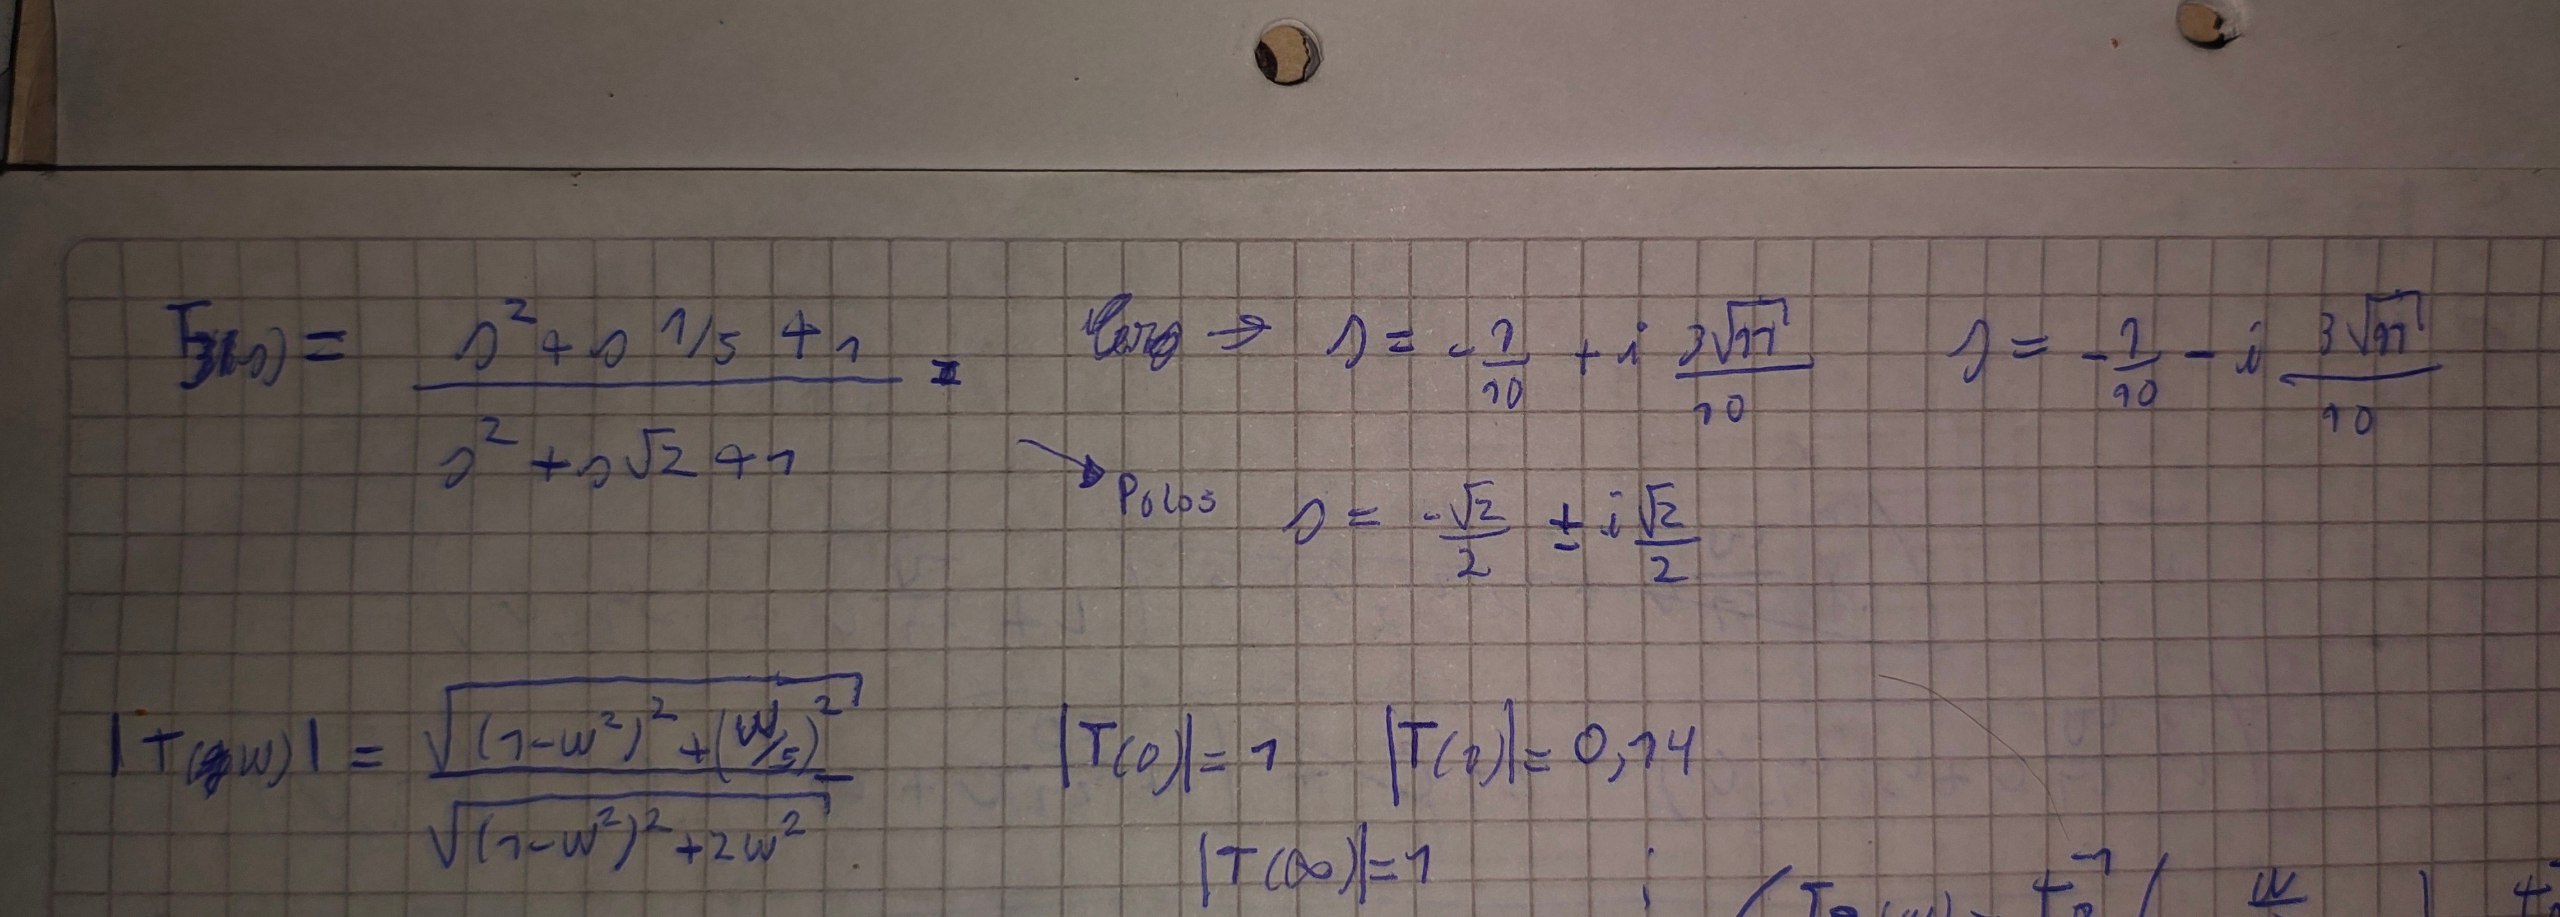 T₃(s) = (s² + s 1/5 + 1) / (s² + s√2 + 1) = Cero → s = -1/10 + i 3√11/10 s = -1/10 - i 3√11/10
→ Polos s = -√2/2 ± i √2/2
|T(jw)| = √((1-w²)² + (w/5)²) / √((1-w²)² + 2w²) |T(0)| = 1 |T(1)| = 0,14
|T(∞)| = 1